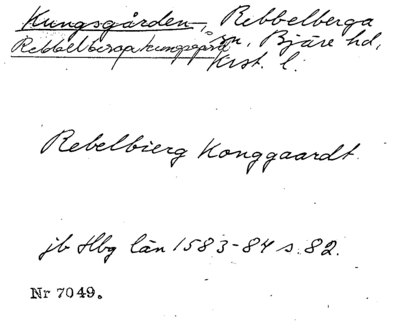 Kungsgården, Rebbelberga
Rebbelberga kungsgård sn, Bjäre hd,
Krist. l.
Rebelbierg Konggaardt
jb Hbg län 1583-84 s. 82.
Nr 7049.